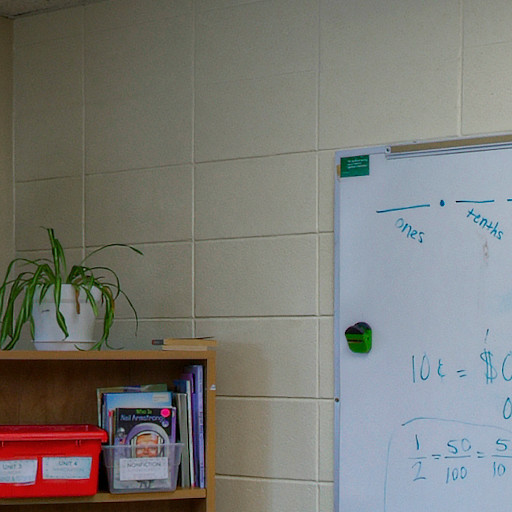 ones
tenths
10¢ = $0
0
1/2 = 50/100 = 5/10
Who Is
Neil Armstrong?
NONFICTION
UNIT 3
UNIT 4